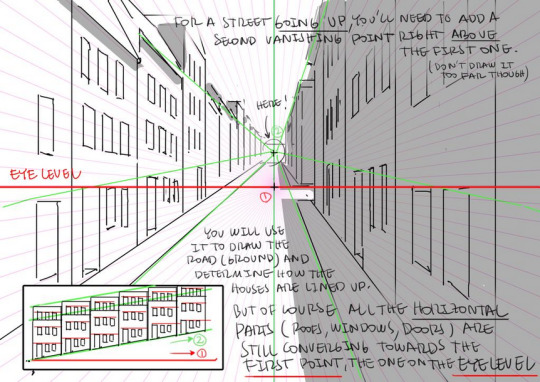 FOR A STREET GOING UP, YOU'LL NEED TO ADD A
SECOND VANISHING POINT RIGHT ABOVE
THE FIRST ONE.
(DON'T DRAW IT
TOO FAR THOUGH)
HERE!
2
EYE LEVEL
1
YOU WILL USE
IT TO DRAW THE
ROAD (GROUND) AND
DETERMINE HOW THE
HOUSES ARE LINED UP.
BUT OF COURSE ALL THE HORIZONTAL
PARTS (ROOFS, WINDOWS, DOORS) ARE
STILL CONVERGING TOWARDS THE
FIRST POINT, THE ONE ON THE EYE LEVEL
2
1